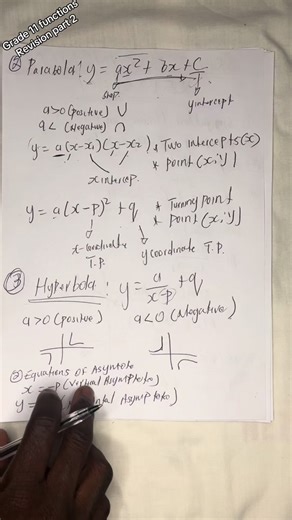 Grade 11 functions
Revision part 2
② Parabola: y = ax² + bx + c
shap.
y intercept
a>0 (positive) ∪
a< (Negative) ∩
y = a(x-x₁)(x-x₂) * Two intercepts(x)
* point (x;y)
x intercep.
y = a(x-p)² + q
* Turning point
* point (x;y)
x-coordinate
T.P.
y coordinate
T.P.
③ Hyperbola: y = a/(x-p) + q
a>0 (positive)
a<0 (Negative)
② Equations of Asymtote
x = -p (Vertical Asymptote)
y = Asymptote)